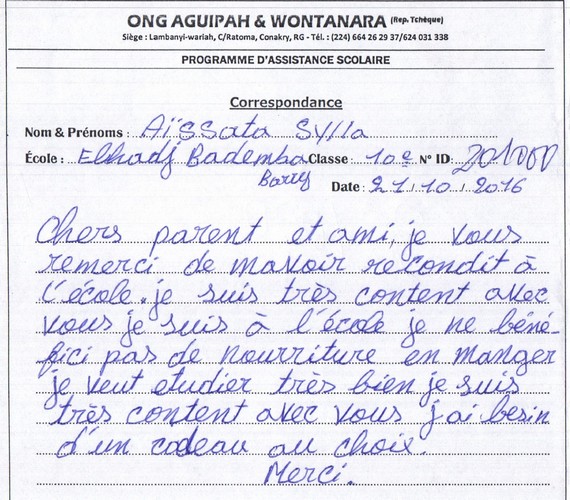 ONG AGUIPAH & WONTANARA (Rep. Tchèque)
Siège : Lambanyi-wariah, C/Ratoma, Conakry, RG - Tél. : (224) 664 26 29 37/624 031 338
PROGRAMME D'ASSISTANCE SCOLAIRE
Correspondance
Nom & Prénoms : Aïssata Sylla
École : Elhadj Bademba Classe : 10e N° ID: 201000
Barry
Date : 21/10/2016
Chers parent et ami, je vous
remerci de mavoir recondit à
l'école. je suis très content avec
vous je suis à l'école je ne béné-
fici pas de nourriture en manger
je veut etudier très bien je suis
très content avec vous j'ai besin
d'un cadeau au choix.
Merci.